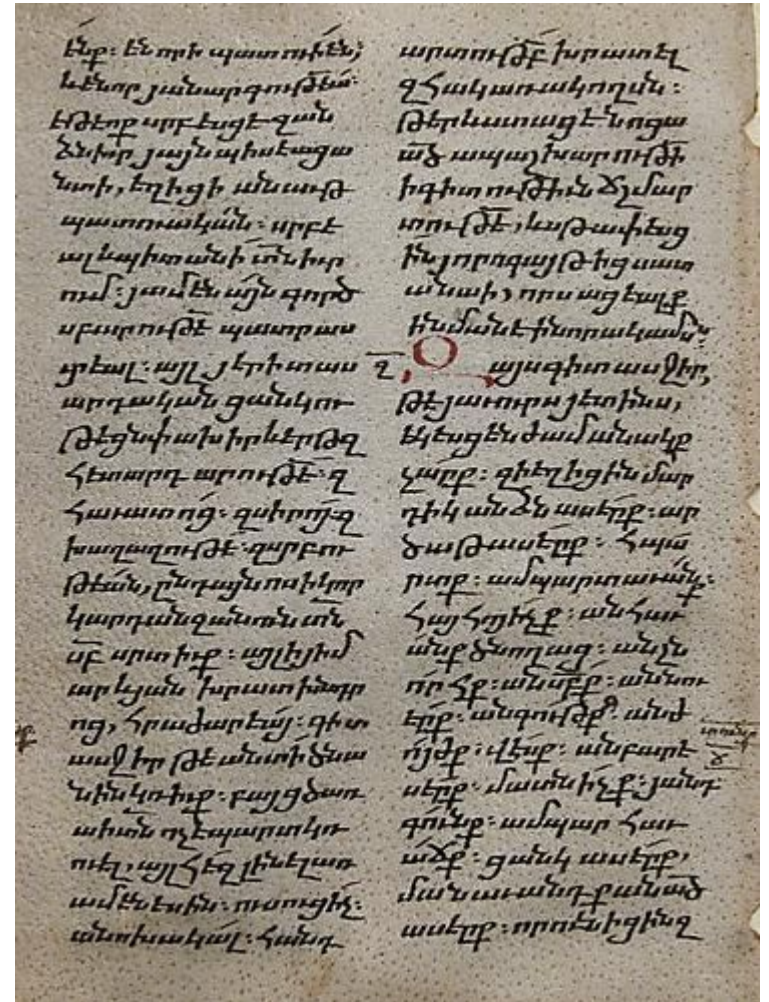 էնք: են որ ի պատուի են;
և են որ յանարգութեան:
Եթե ոք սրբեսցէ զան
ձն իւր յայնպիսեաց ա
նտի, եղիցի անաւթ
պատուական: սրբե
ալ և պիտանի տն իւր
ում: յամենայն գործ
ս բարութե պատրաս
տեալ: այլ յերիտաս
արդական ցանկու
թեց ի փախիր և երթ զ
հետ արդարութե: զ
հաւատոց: զսիրոյ: զ
խաղաղութե: զսրբու
թեան, ընդ այնոսիկ որ
կարդան զանուն տն
սբ սրտիւք: այլ ի յիմ
ար և յան խրատ խնդր
ոց, հրաժարեսջիր: գիտ
ասջիր թէ անտի ծնա
նին կռիւք: բայց ծառ
այի տն ոչ է պարտ կռ
ուել, այլ հեզ լինել առ
ամենեսին: ուսուցիչ:
անոխակալ: հանդ
արտութբ խրատել
զհակառակողսն:
թերևս տացէ նոցա
ած ապաշխարութի
ի գիտութիւն ճշմար
տութե, և սթափեսց
ին յորոգայթից սատ
անայի, որսացեալք
ին ի նմանէ ի նորա կամսն:
զ, Ո այս գիտասջիր,
թե յաւուրս յետինս,
եկեսցեն ժամանակք
չարք: զի եղիցին մար
դիկ անձնասէրք: ար
ծաթասէրք: հպա
րտք: ամպարտաւանք:
հայհոյիչք: անհաւ
անք ծնողաց: անշն
որհք: անսրբք: աննու
էրք: անգութք: անժ
ոյժք: վէսք: անբարե
սէրք: մատնիչք: յանդ
գունք: ամպար հաւ
աճք: ցանկասէրք,
մանաւանդ քան ած
ասէրք: որ ունիցին զ